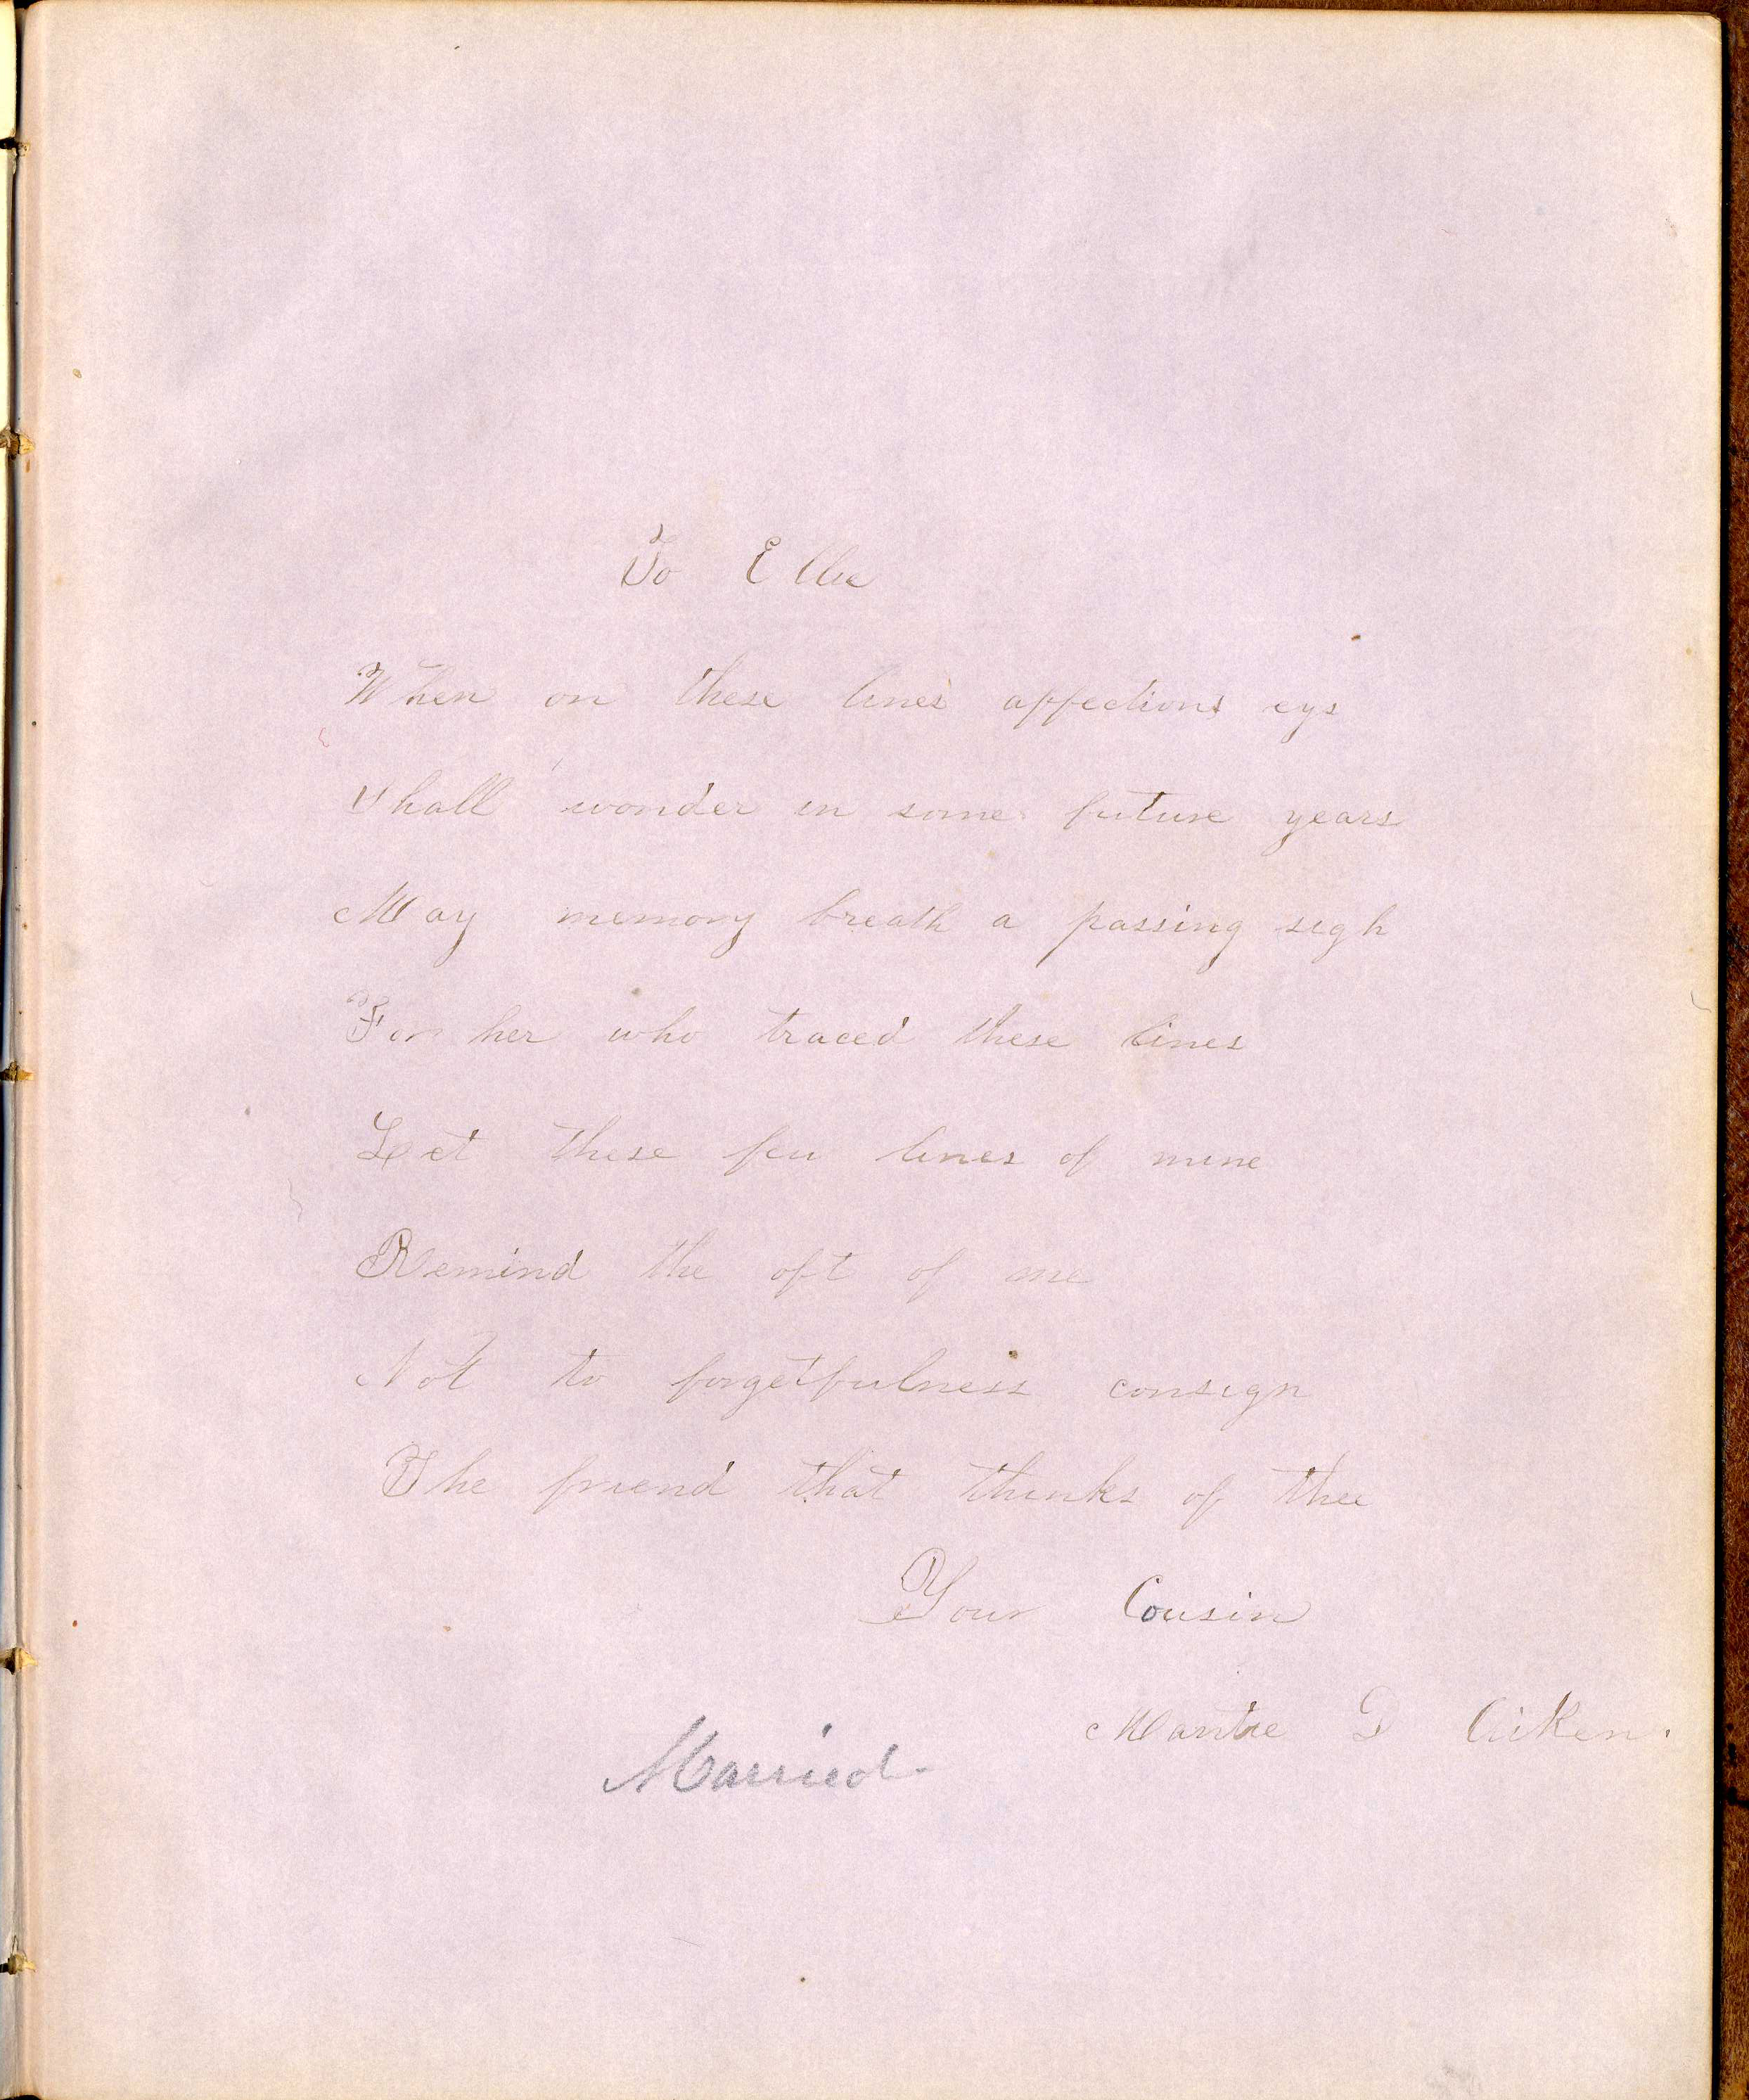 To Ellie
When on these lines affections eys
Shall wonder in some future years
May memory breath a passing sigh
For her who traced these lines
Let these few lines of mine
Remind the oft of me
Not to forgetfulness consign
The friend that thinks of thee
Your Cousin
D Aiken.
Married.